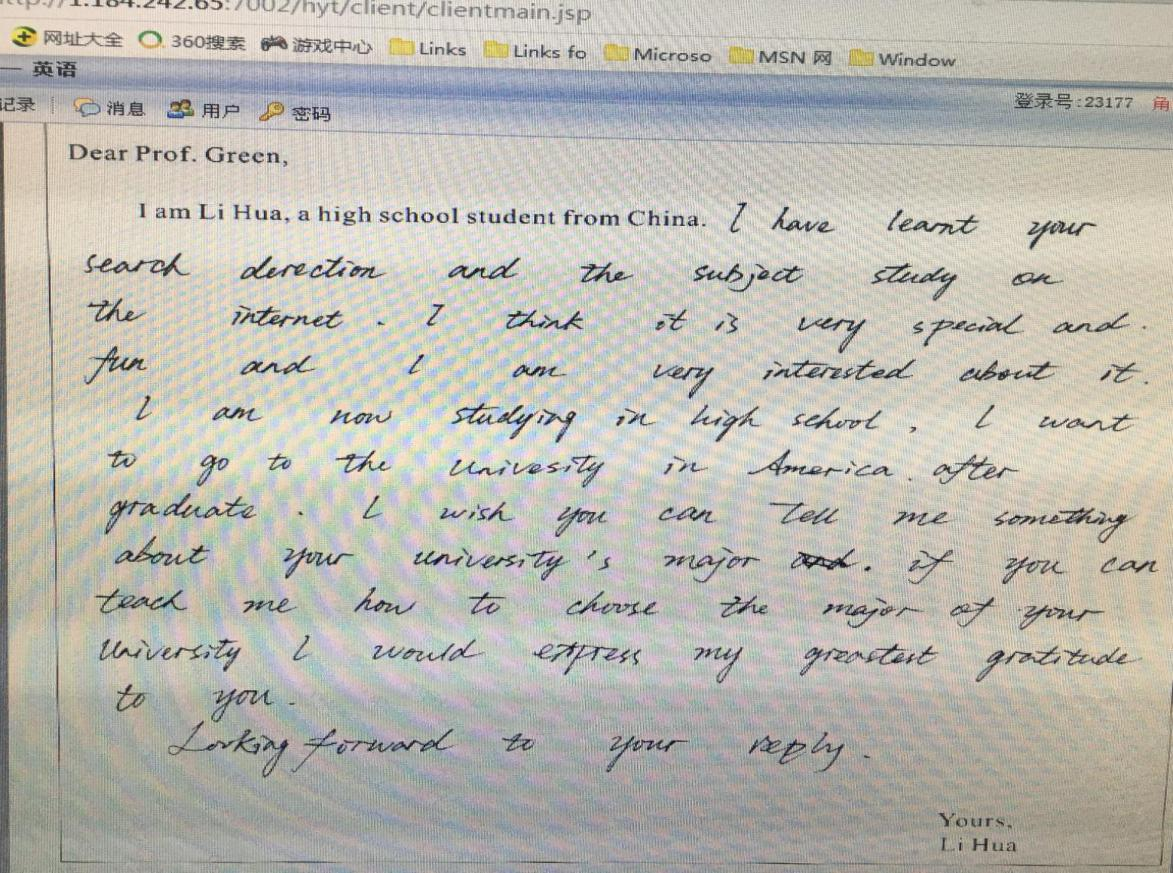 1.184.242.65:7002/hyt/client/clientmain.jsp
网址大全 360搜索 游戏中心 Links Links fo Microso MSN 网 Window
— 英语
记录 消息 用户 密码 登录号:23177 角
Dear Prof. Green,
I am Li Hua, a high school student from China. I have learnt your
search derection and the subject study on
the internet. I think it is very special and.
fun and I am very interested about it.
I am now studying in high school, I want
to go to the Univesity in America. after
graduate. I wish you can Tell me something
about your university's major and. if you can
teach me how to choose the major of your
University I would express my greastest gratitude
to you.
Looking forward to your reply.
Yours,
Li Hua